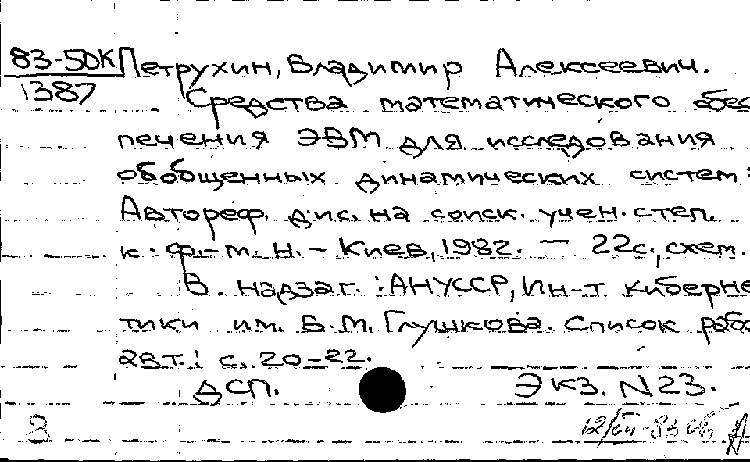 83-5DK Петрухин, Владимир Алексеевич.
1387
Средства математического обес
печения ЭВМ для исследования
обобщенных динамических систем:
Автореф. дис. на соиск. учен. степ.
к. ф.-м. н. - Киев, 1982. — 22с., схем.
В. надзаг.: АН УССР, Ин-т киберне
тики им. В. М. Глушкова. Список рабо
авт.: с. 20-22.
ДСП. Экз. N23.